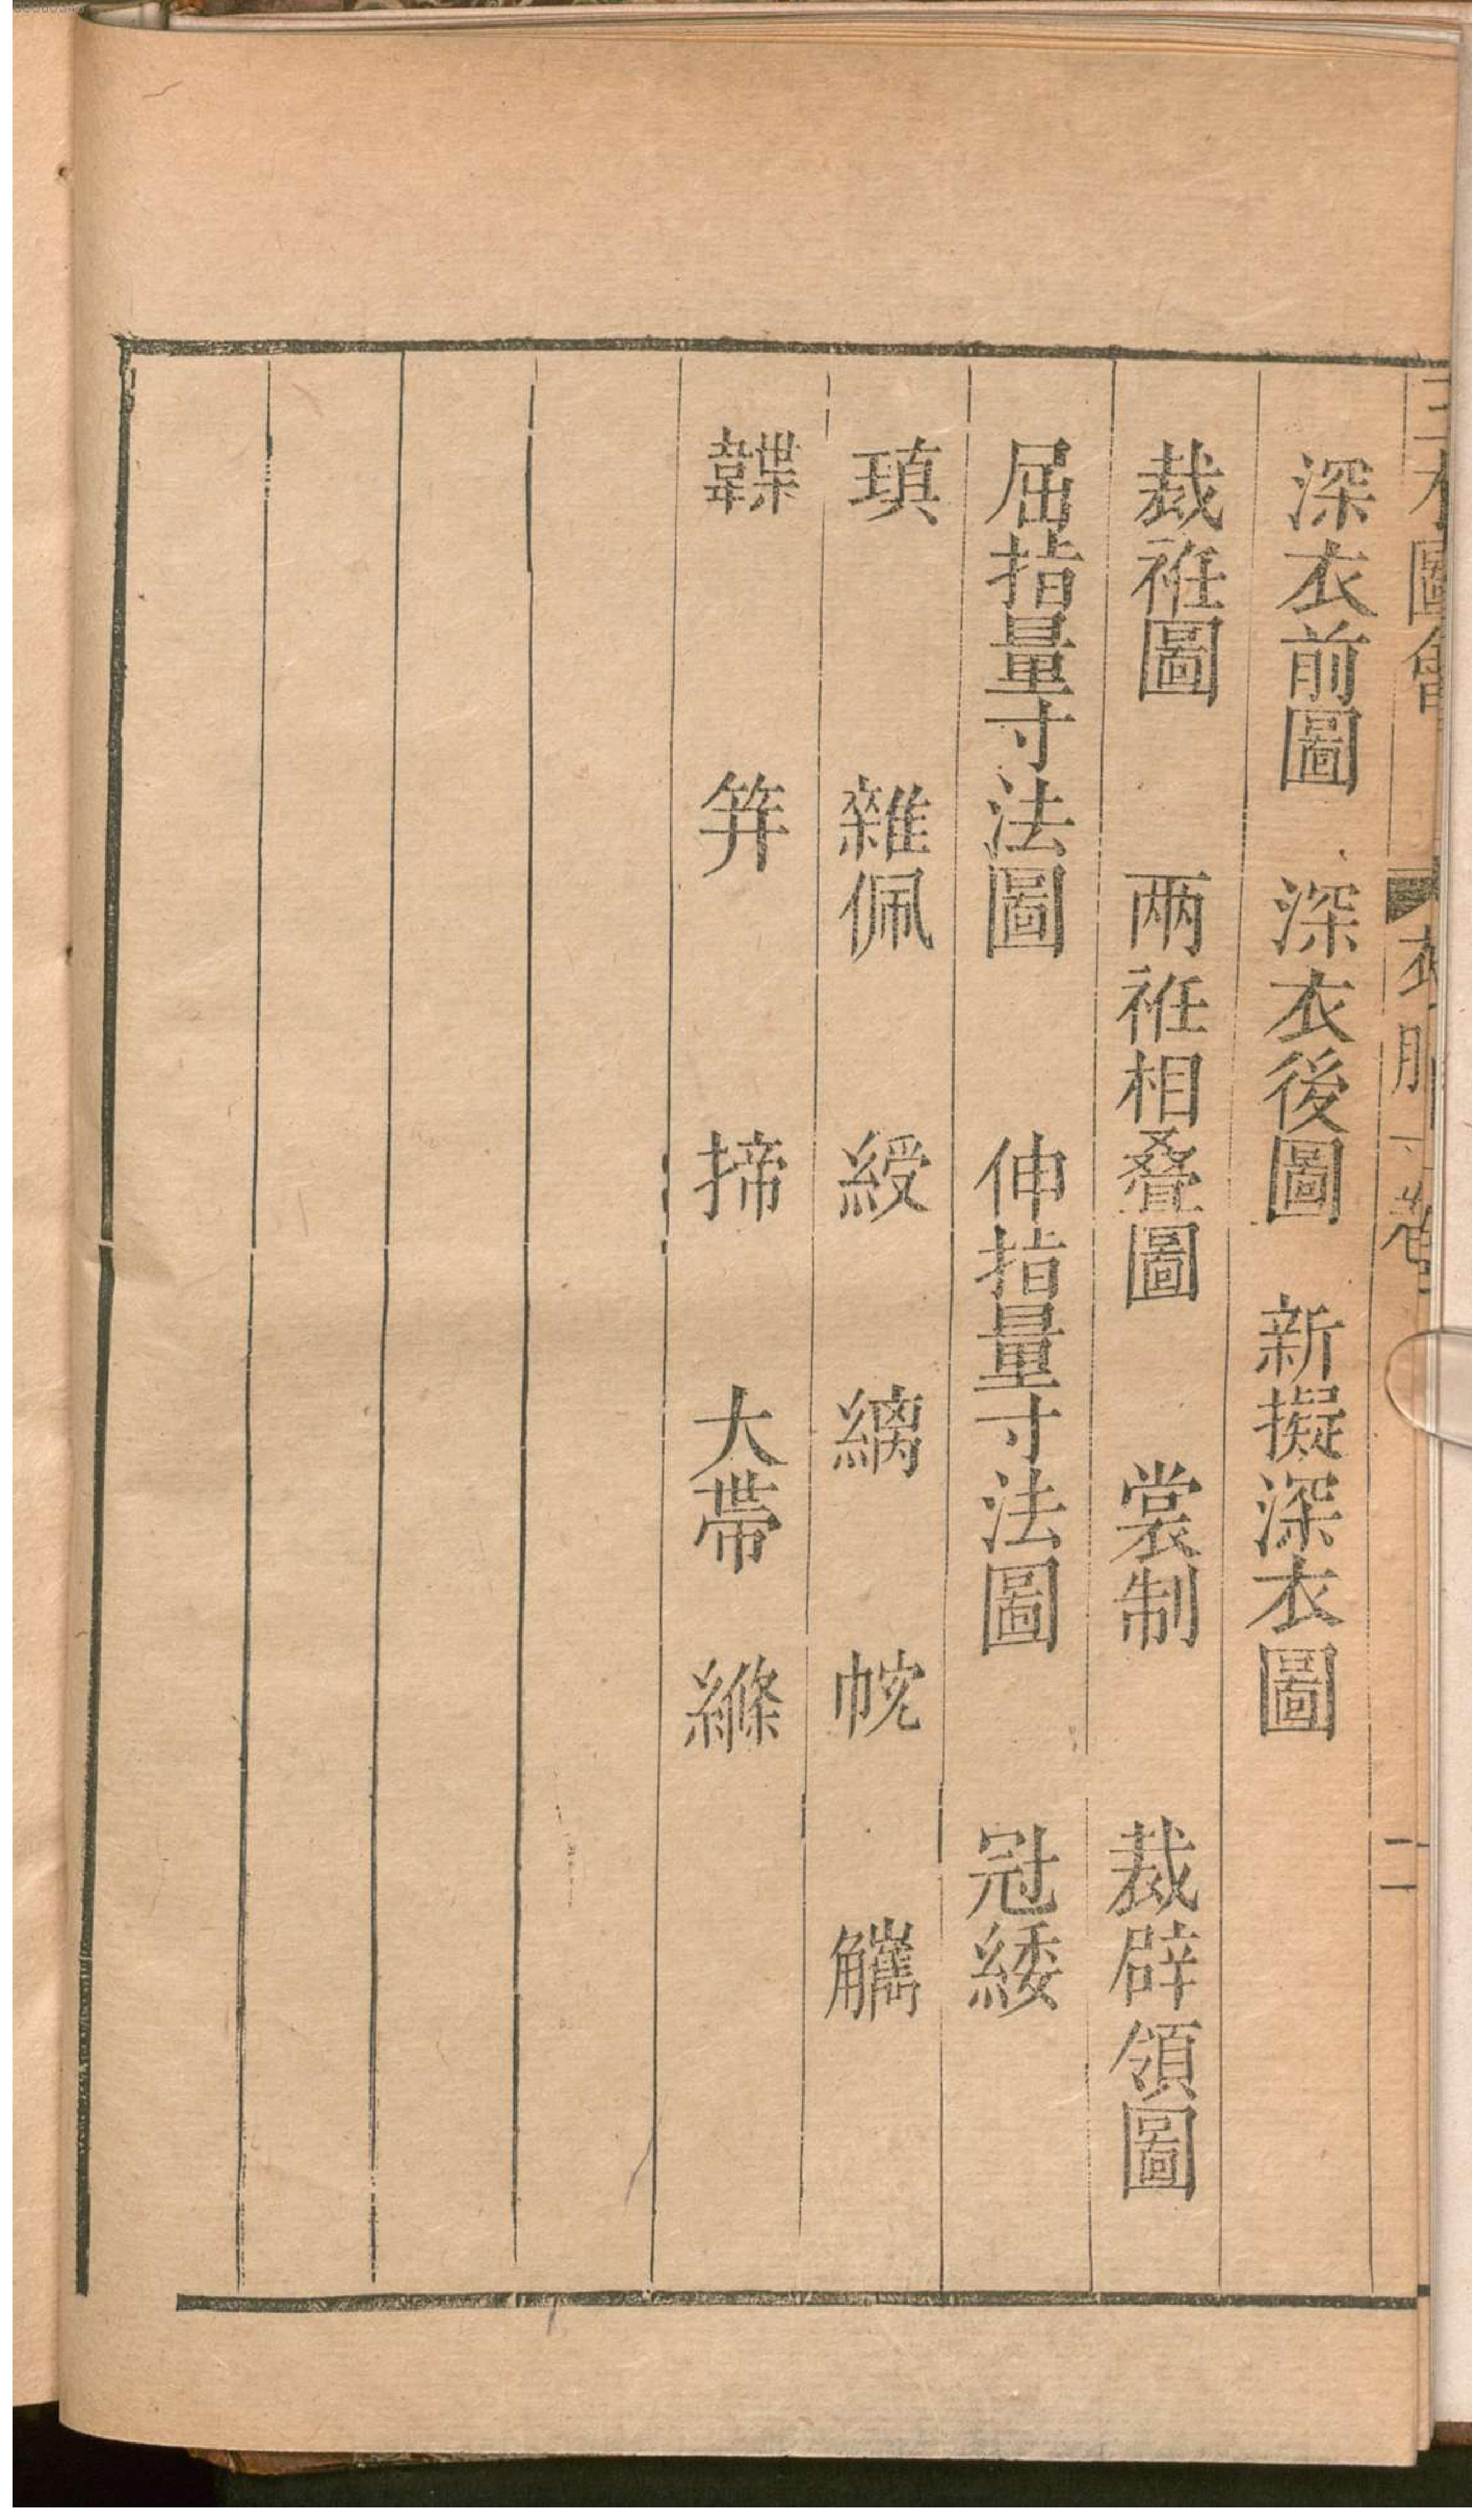 三才圖會 衣服一卷 二
深衣前圖 深衣後圖 新擬深衣圖
裁袵圖 两袵相叠圖 裳制 裁辟領圖
屈指量寸法圖 伸指量寸法圖 冠緌
瑱 雜佩 綬 縭 帨 觿
韘 笄 揥 大帶 縧